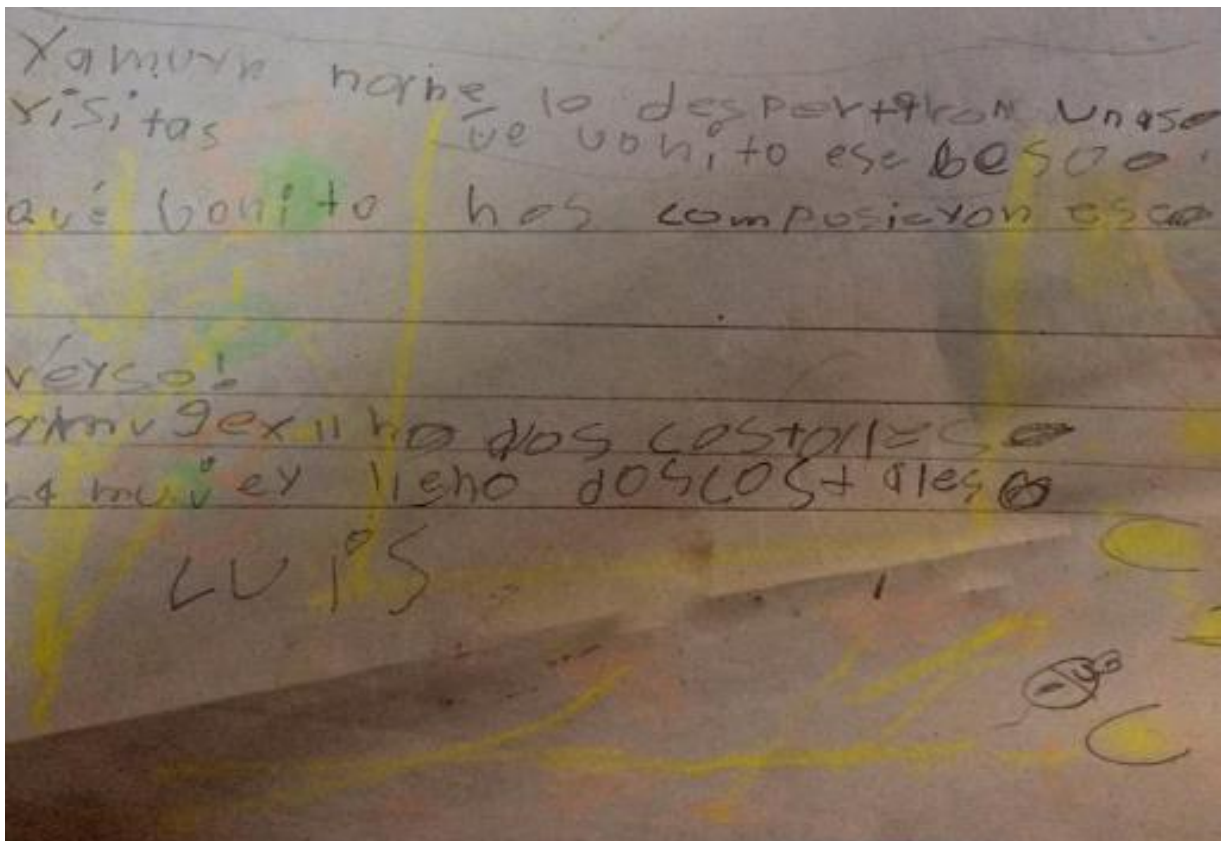 Yamuyn noche lo despertaron unas
visitas ve vonito ese beso
qué bonito has composicyon ese
verso!
mugex lleno dos costales
la mujey lleno dos costales
LUiS